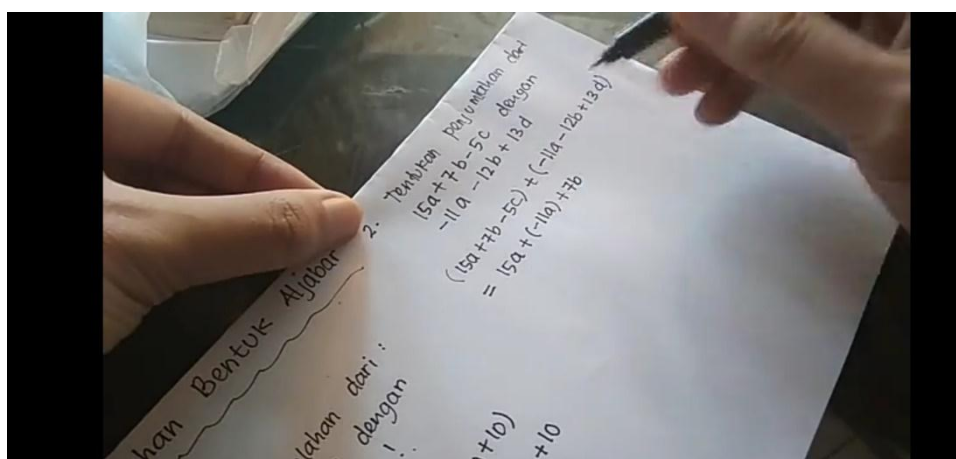 Bentuk Aljabar
dari :
dengan
!
+10)
+10
2. Tentukan penjumlahan dari
15a+7b-5c dengan
-11a-12b+13d
(15a+7b-5c)+(-11a-12b+13d)
= 15a+(-11a)+7b